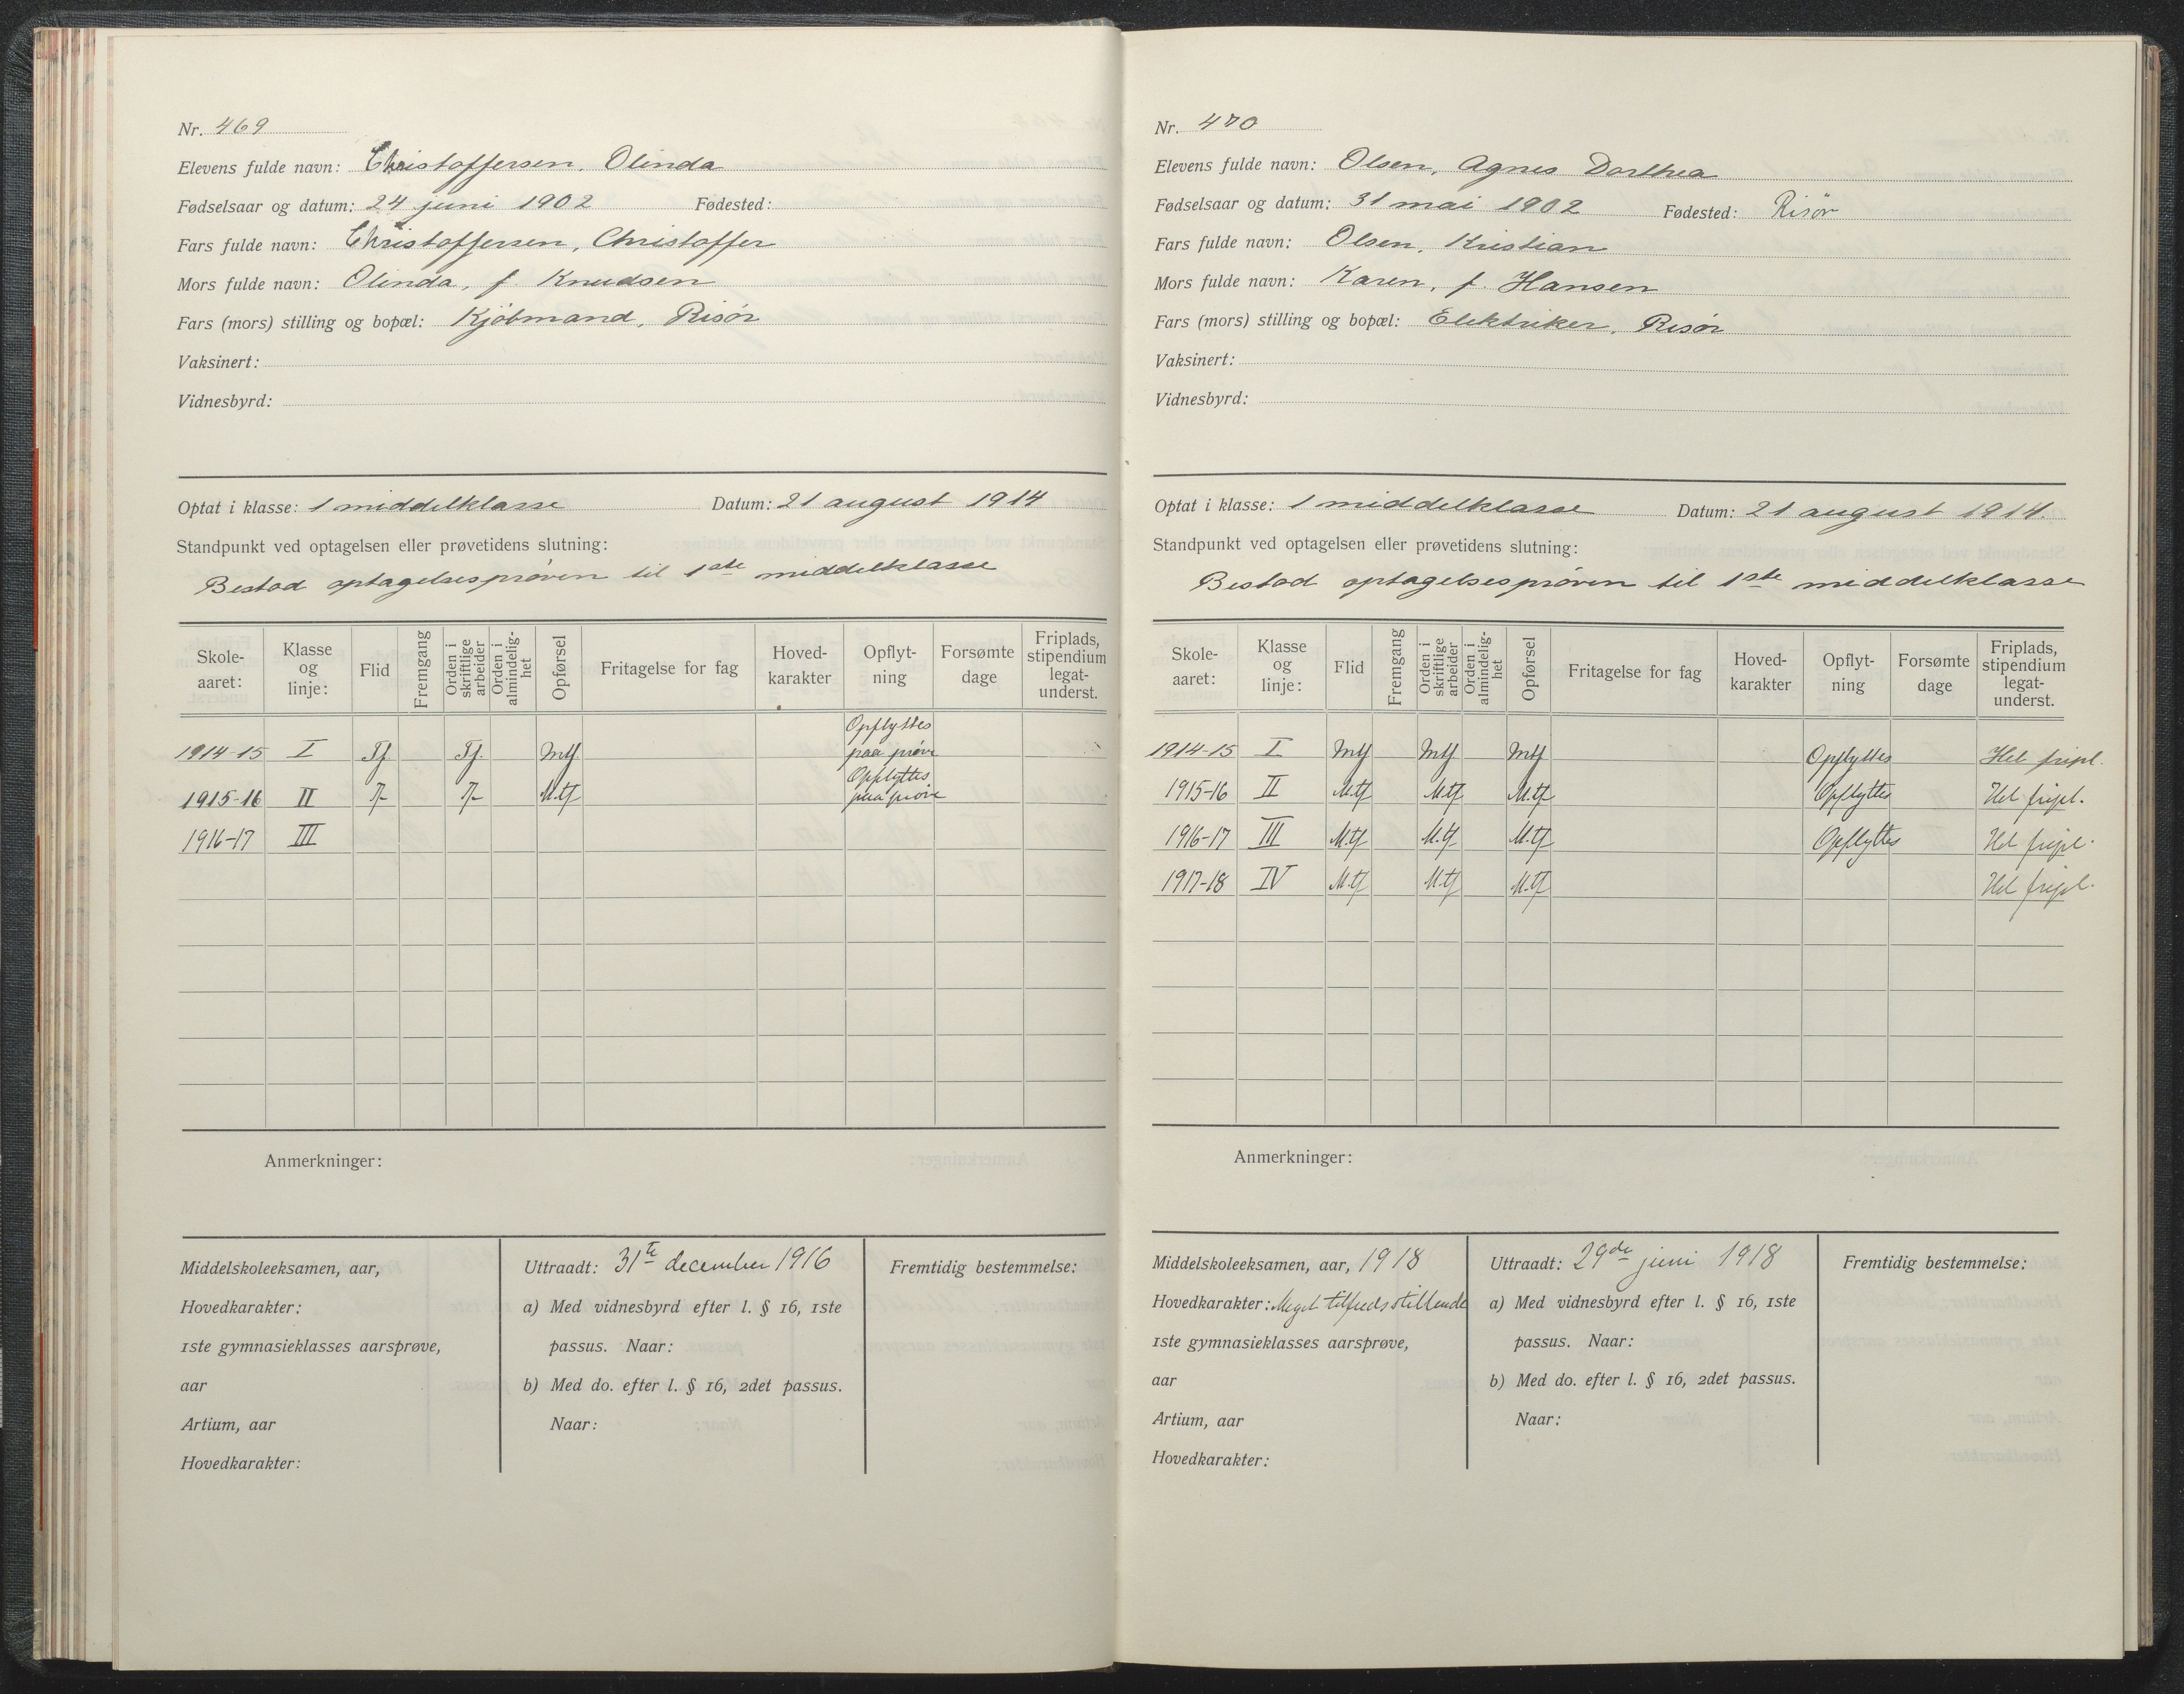 Nr. 469
Elevens fulde navn: Christoffersen, Olinda
Fødselsaar og datum: 24 juni 1902 Fødested:
Fars fulde navn: Christoffersen, Christoffer
Mors fulde navn: Olinda, f. Knudsen
Fars (mors) stilling og bopæl: Kjöbmand, Risör
Vaksinert:
Vidnesbyrd:
Optat i klasse: 1 middelklasse Datum: 21 august 1914
Standpunkt ved optagelsen eller prøvetidens slutning:
Bestod optagelsesprøven til 1ste middelklasse
Skole-aaret: Klasse og linje: Flid Fremgang Orden i skriftlige arbeider Orden i almindelig-het Opførsel Fritagelse for fag Hoved-karakter Opflyt-ning Forsømte dage Friplads, stipendium legat-underst.
1914-15 I Tf Tf. Mtf Opflyttes paa prøve
1915-16 II Tf Tf M.tf Opflyttes paa prøve
1916-17 III
Anmerkninger:
Middelskoleeksamen, aar,
Hovedkarakter:
1ste gymnasieklasses aarsprøve,
aar
Artium, aar
Hovedkarakter:
Uttraadt: 31te december 1916
a) Med vidnesbyrd efter l. § 16, 1ste
passus. Naar:
b) Med do. efter l. § 16, 2det passus.
Naar:
Fremtidig bestemmelse:
Nr. 470
Elevens fulde navn: Olsen, Agnes Dorthea
Fødselsaar og datum: 31 mai 1902 Fødested: Risör
Fars fulde navn: Olsen, Kristian
Mors fulde navn: Karen, f. Hansen
Fars (mors) stilling og bopæl: Elektriker, Risör
Vaksinert:
Vidnesbyrd:
Optat i klasse: 1 middelklasse Datum: 21 august 1914.
Standpunkt ved optagelsen eller prøvetidens slutning:
Bestod optagelsesprøven til 1ste middelklasse
Skole-aaret: Klasse og linje: Flid Fremgang Orden i skriftlige arbeider Orden i almindelig-het Opførsel Fritagelse for fag Hoved-karakter Opflyt-ning Forsømte dage Friplads, stipendium legat-underst.
1914-15 I Mtf Mtf Mtf Opflyttes Hel fripl.
1915-16 II M.tf M.tf M.tf Opflyttes Hel fripl.
1916-17 III M.tf M.tf M.tf Opflyttes Hel fripl.
1917-18 IV M.tf M.tf M.tf Hel fripl.
Anmerkninger:
Middelskoleeksamen, aar, 1918
Hovedkarakter: Meget tilfredsstillende
1ste gymnasieklasses aarsprøve,
aar
Artium, aar
Hovedkarakter:
Uttraadt: 29de juni 1918
a) Med vidnesbyrd efter l. § 16, 1ste
passus. Naar:
b) Med do. efter l. § 16, 2det passus.
Naar:
Fremtidig bestemmelse: